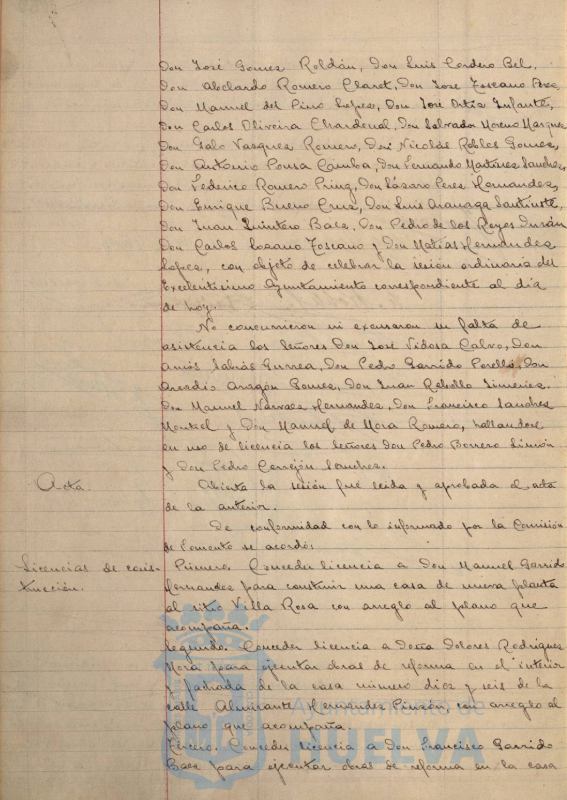 Don José Gomez Roldán, Don Luis Cordero Bel,
Don Abelardo Romero Claret, Don José Toscano Perez,
Don Manuel del Pino Lopez, Don José Ortiz Infante,
Don Carlos Oliveira Chardenal, Don Salvador Moreno Marquez
Don Galo Vazquez Romero, Don Nicolás Robles Gomez,
Don Antonio Pousa Camba, Don Fernando Martinez Sanchez,
Don Federico Romero Pring, Don Lázaro Perez Hernandez,
Don Enrique Bueno Cruz, Don Luis
Don Juan Quintero Baez, Don Pedro de los Reyes Durán
Don Carlos Lozano Toscano y Don Matías Hernandez
Lopez, con objeto de celebrar la sesión ordinaria del
Excelentísimo Ayuntamiento correspondiente al día
de hoy.
No concurrieron ni excusaron su falta de
asistencia los Señores Don José Vidosa Calvo, Don
Amós Sabrás Gurrea, Don Pedro Garrido Perelló, Don
Arcadio Aragón Gomez, Don Juan Rebollo Jimenez.
Don Manuel Narvaez Hernandez, Don Francisco Sanchez
Montiel y Don Manuel de Mora Romero, hallandose
en uso de licencia los Señores Don Pedro Borrero Limón
y Don Pedro Cerrejón Sanchez.
Acta. Abierta la sesión fué leida y aprobada el acta
de la anterior.
De conformidad con lo informado por la Comisión
de Fomento se acordó:
Licencias de cons- Primero. Conceder licencia a Don Manuel Garrido
trucción. Hernandez para construir una casa de nueva planta
al sitio Villa Rosa con arreglo al plano que
acompaña.
Segundo. Conceder licencia a Doña Dolores Rodriguez
Mora para ejecutar obras de reforma en el interior
y fachada de la casa número diez y seis de la
calle Almirante Hernandez Pinzón, con arreglo al
plano que acompaña.
Tercero. Conceder licencia a Don Francisco Garrido
Baez para ejecutar obras de reforma en la casa
Ayuntamiento de
HUELVA